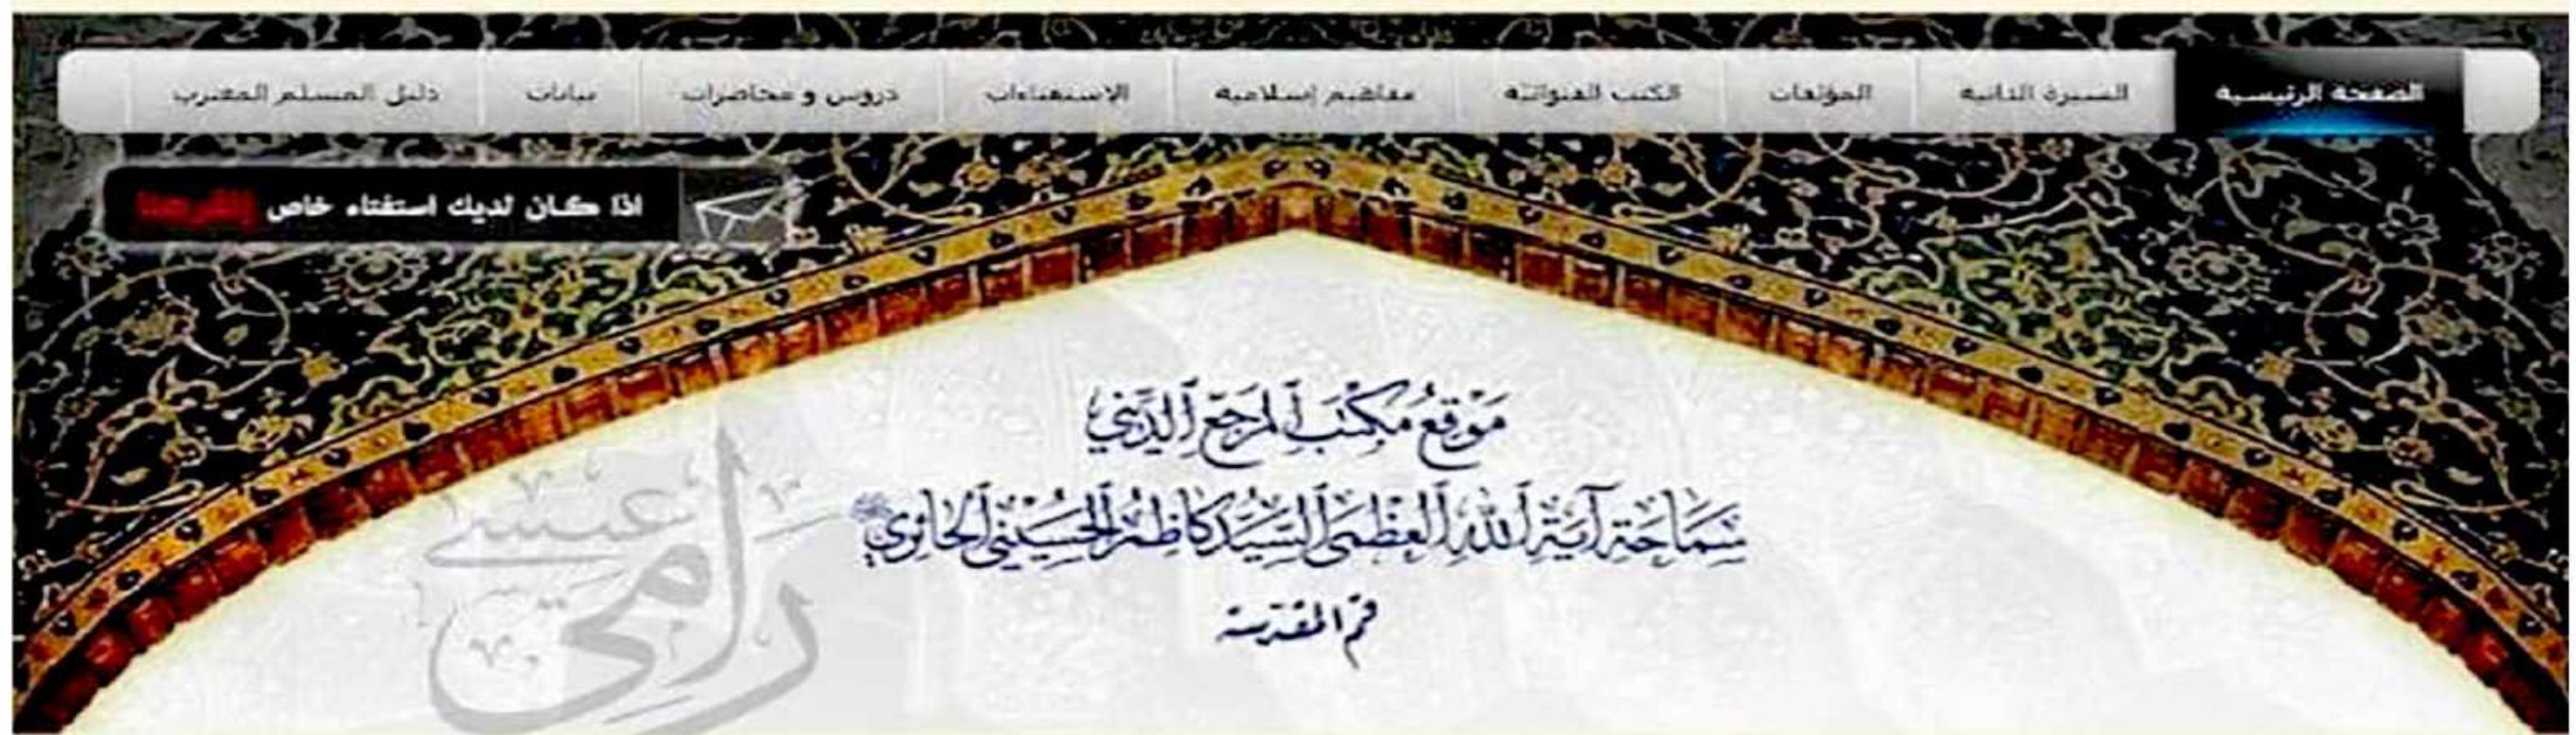 الصفحة الرئيسية السيرة الذاتية المؤلفات الكتب الفتوائية مفاهيم إسلامية الاستفتاءات دروس و محاضرات بيانات دليل المسلم المغترب
اذا كان لديك استفتاء خاص إنقر هنا
مَوْقِعُ مَكْتَبِ ٱلمَرْجَعِ ٱلدِّيْنِي
سَمَاحَة آيَةِ ٱللهِ ٱلعُظْمَى ٱلسَّيِّد كَاظِمُ ٱلحُسَيْنِي ٱلحَائِرِي
قم المقدسة
رامي عيسى